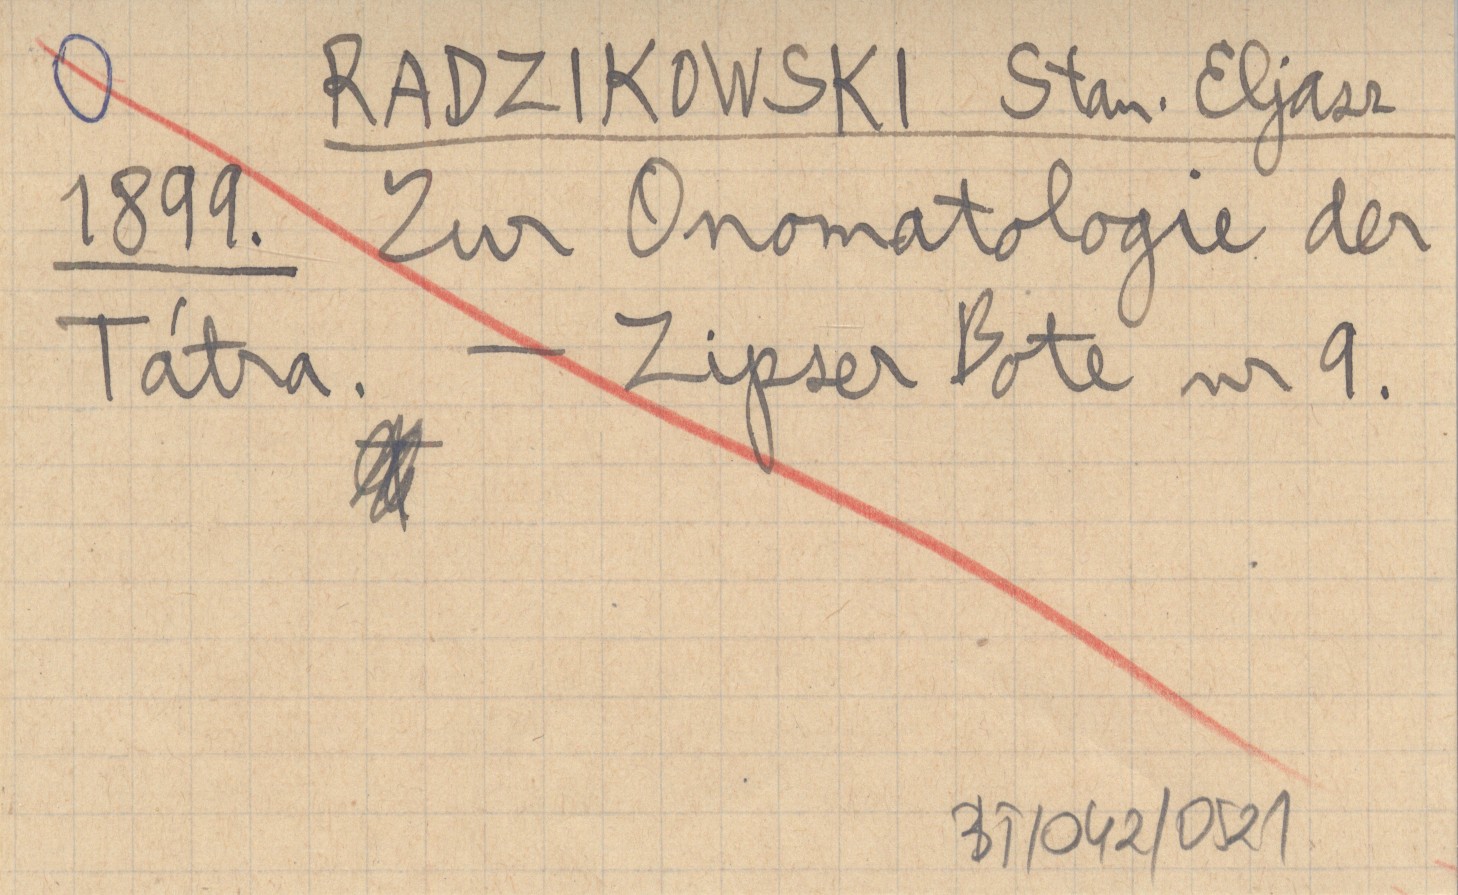 RADZIKOWSKI Stan. Eljasz
1899. Zur Onomatologie der
Tátra. — Zipser Bote nr 9.
BT/042/0521